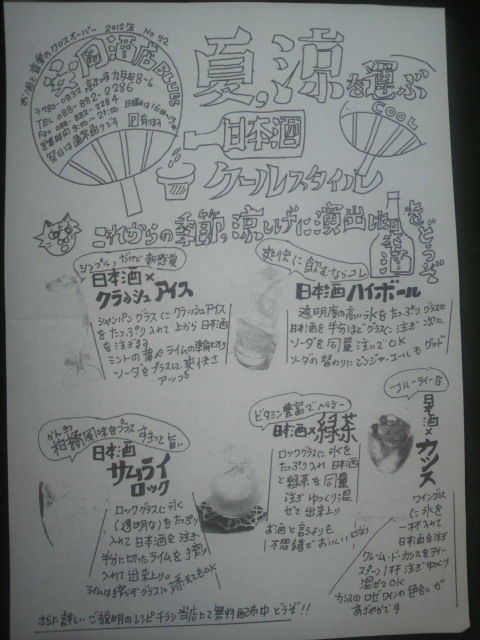 お酒と音楽のクロスオーバー 2012年 No 92
安岡酒店BLUES
〒780-0832 高知市九反田8-6
TEL 088-882-2286
Fax 088-882-2284
営業時間 9:00~21:00
日曜は16:00
祭日は通常通りです
P有ります
夏,涼を運ぶ
COOL
日本酒
クールスタイル
これからの季節,涼しげに演出した日本酒をどうぞ
シンプルだけど新感覚
日本酒×
クラッシュアイス
シャンパングラスにクラッシュアイス
をたっぷり入れて上から日本酒
を注ぎます
ミントの葉やライムの輪切り
ソーダをプラスして爽快さ
アップ
爽快に飲むならコレ
日本酒ハイボール
透明度の高い氷をたっぷりグラスに
日本酒を半分ほどグラスに注ぎ次に
ソーダを同量注いでOK
ソーダの替わりにジンジャーエールもグッド
かんきつ
柑橘風味をプラス すきっと旨い
日本酒
サムライ
ロック
ロックグラスに氷
(透明な)をたっぷり
入れて日本酒を注ぎ
半分に切ったライムを搾り
入れて出来上り
ライムは搾らずグラスに添えてもOK
ビタミン豊富でヘルシー
日本酒×緑茶
ロックグラスに氷を
たっぷり入れ日本酒
と緑茶を同量
注ぎゆっくり混
ぜて出来上り
お酒と言うよりも
不思議でおいしい
フルーティーな
日本酒×カシス
ワイングラス
に氷を
一杯入れて
日本酒を注ぎ
クレーム・ド・カシスをティー
スプーン1杯注ぎゆっくり
混ぜてOK
カシスのロゼワインの色合いが
あざやかです
さらに詳しいご説明のレシピチラシ当店にて無料配布中 どうぞ!!